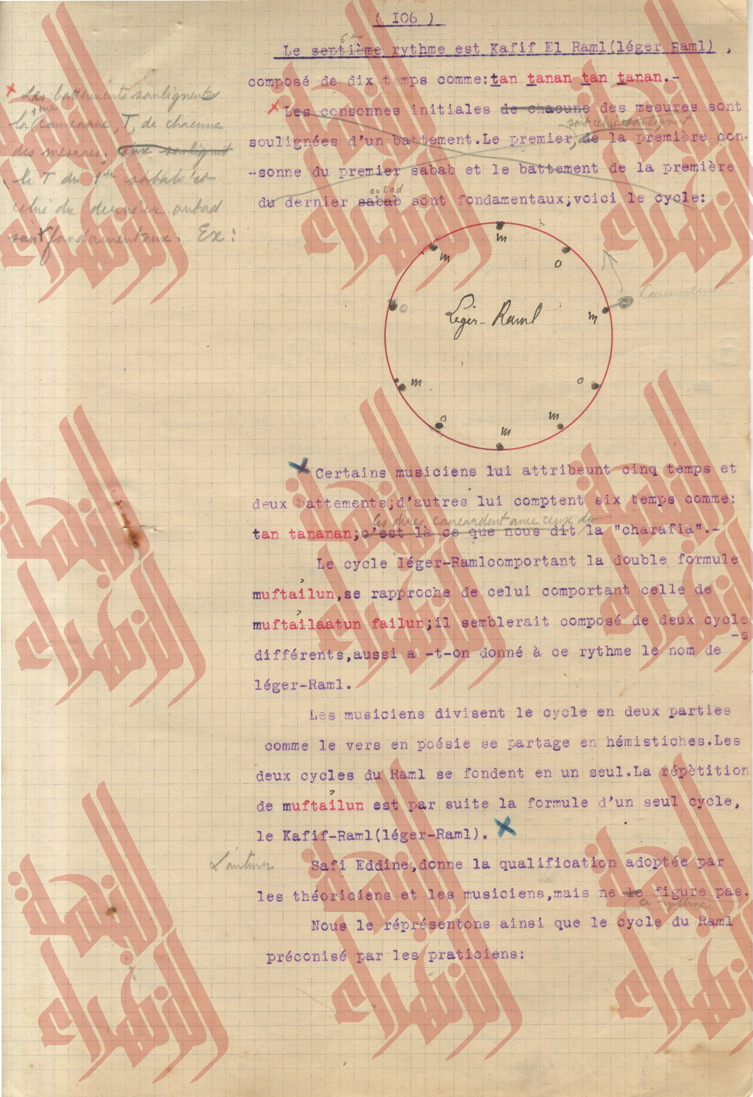 ( I06 )
6ème
Le septième rythme est Kafif El Raml(léger Raml) ,
composé de dix temps comme:tan tanan tan tanan.-
Les consonnes initiales de chacune des mesures sont
soulignées d'un battement.Le premier,de la première con-
-sonne du premier sabab et le battement de la première
autad
du dernier sabab sont fondamentaux;voici le cycle:
x Les battements soulignent
la consonne, T, de chacune
des mesures. eux soulignt
le T du 1er sabab et
celui du dernier autad
sont fondamentaux. Ex:
m
m
o
o
Léger-Raml
m
m
o
o
m
m
Certains musiciens lui attribeunt cinq temps et
deux battements;d'autres lui comptent six temps comme:
tan tananan;c'est là ce que nous dit la "charafia".-
Le cycle léger-Ramlcomportant la double formule
muftaïlun,se rapproche de celui comportant celle de
muftaïlaatun failun;il semblerait composé de deux cycle
-s
différents,aussi a -t-on donné à ce rythme le nom de
léger-Raml.
Les musiciens divisent le cycle en deux parties
comme le vers en poésie se partage en hémistiches.Les
deux cycles du Raml se fondent en un seul.La répètition
de muftaïlun est par suite la formule d'un seul cycle,
le Kafif-Raml(léger-Raml).
Safi Eddine,donne la qualification adoptée par
les théoriciens et les musiciens,mais ne le figure pas.
Nous le réprésentons ainsi que le cycle du Raml
préconisé par les praticiens: